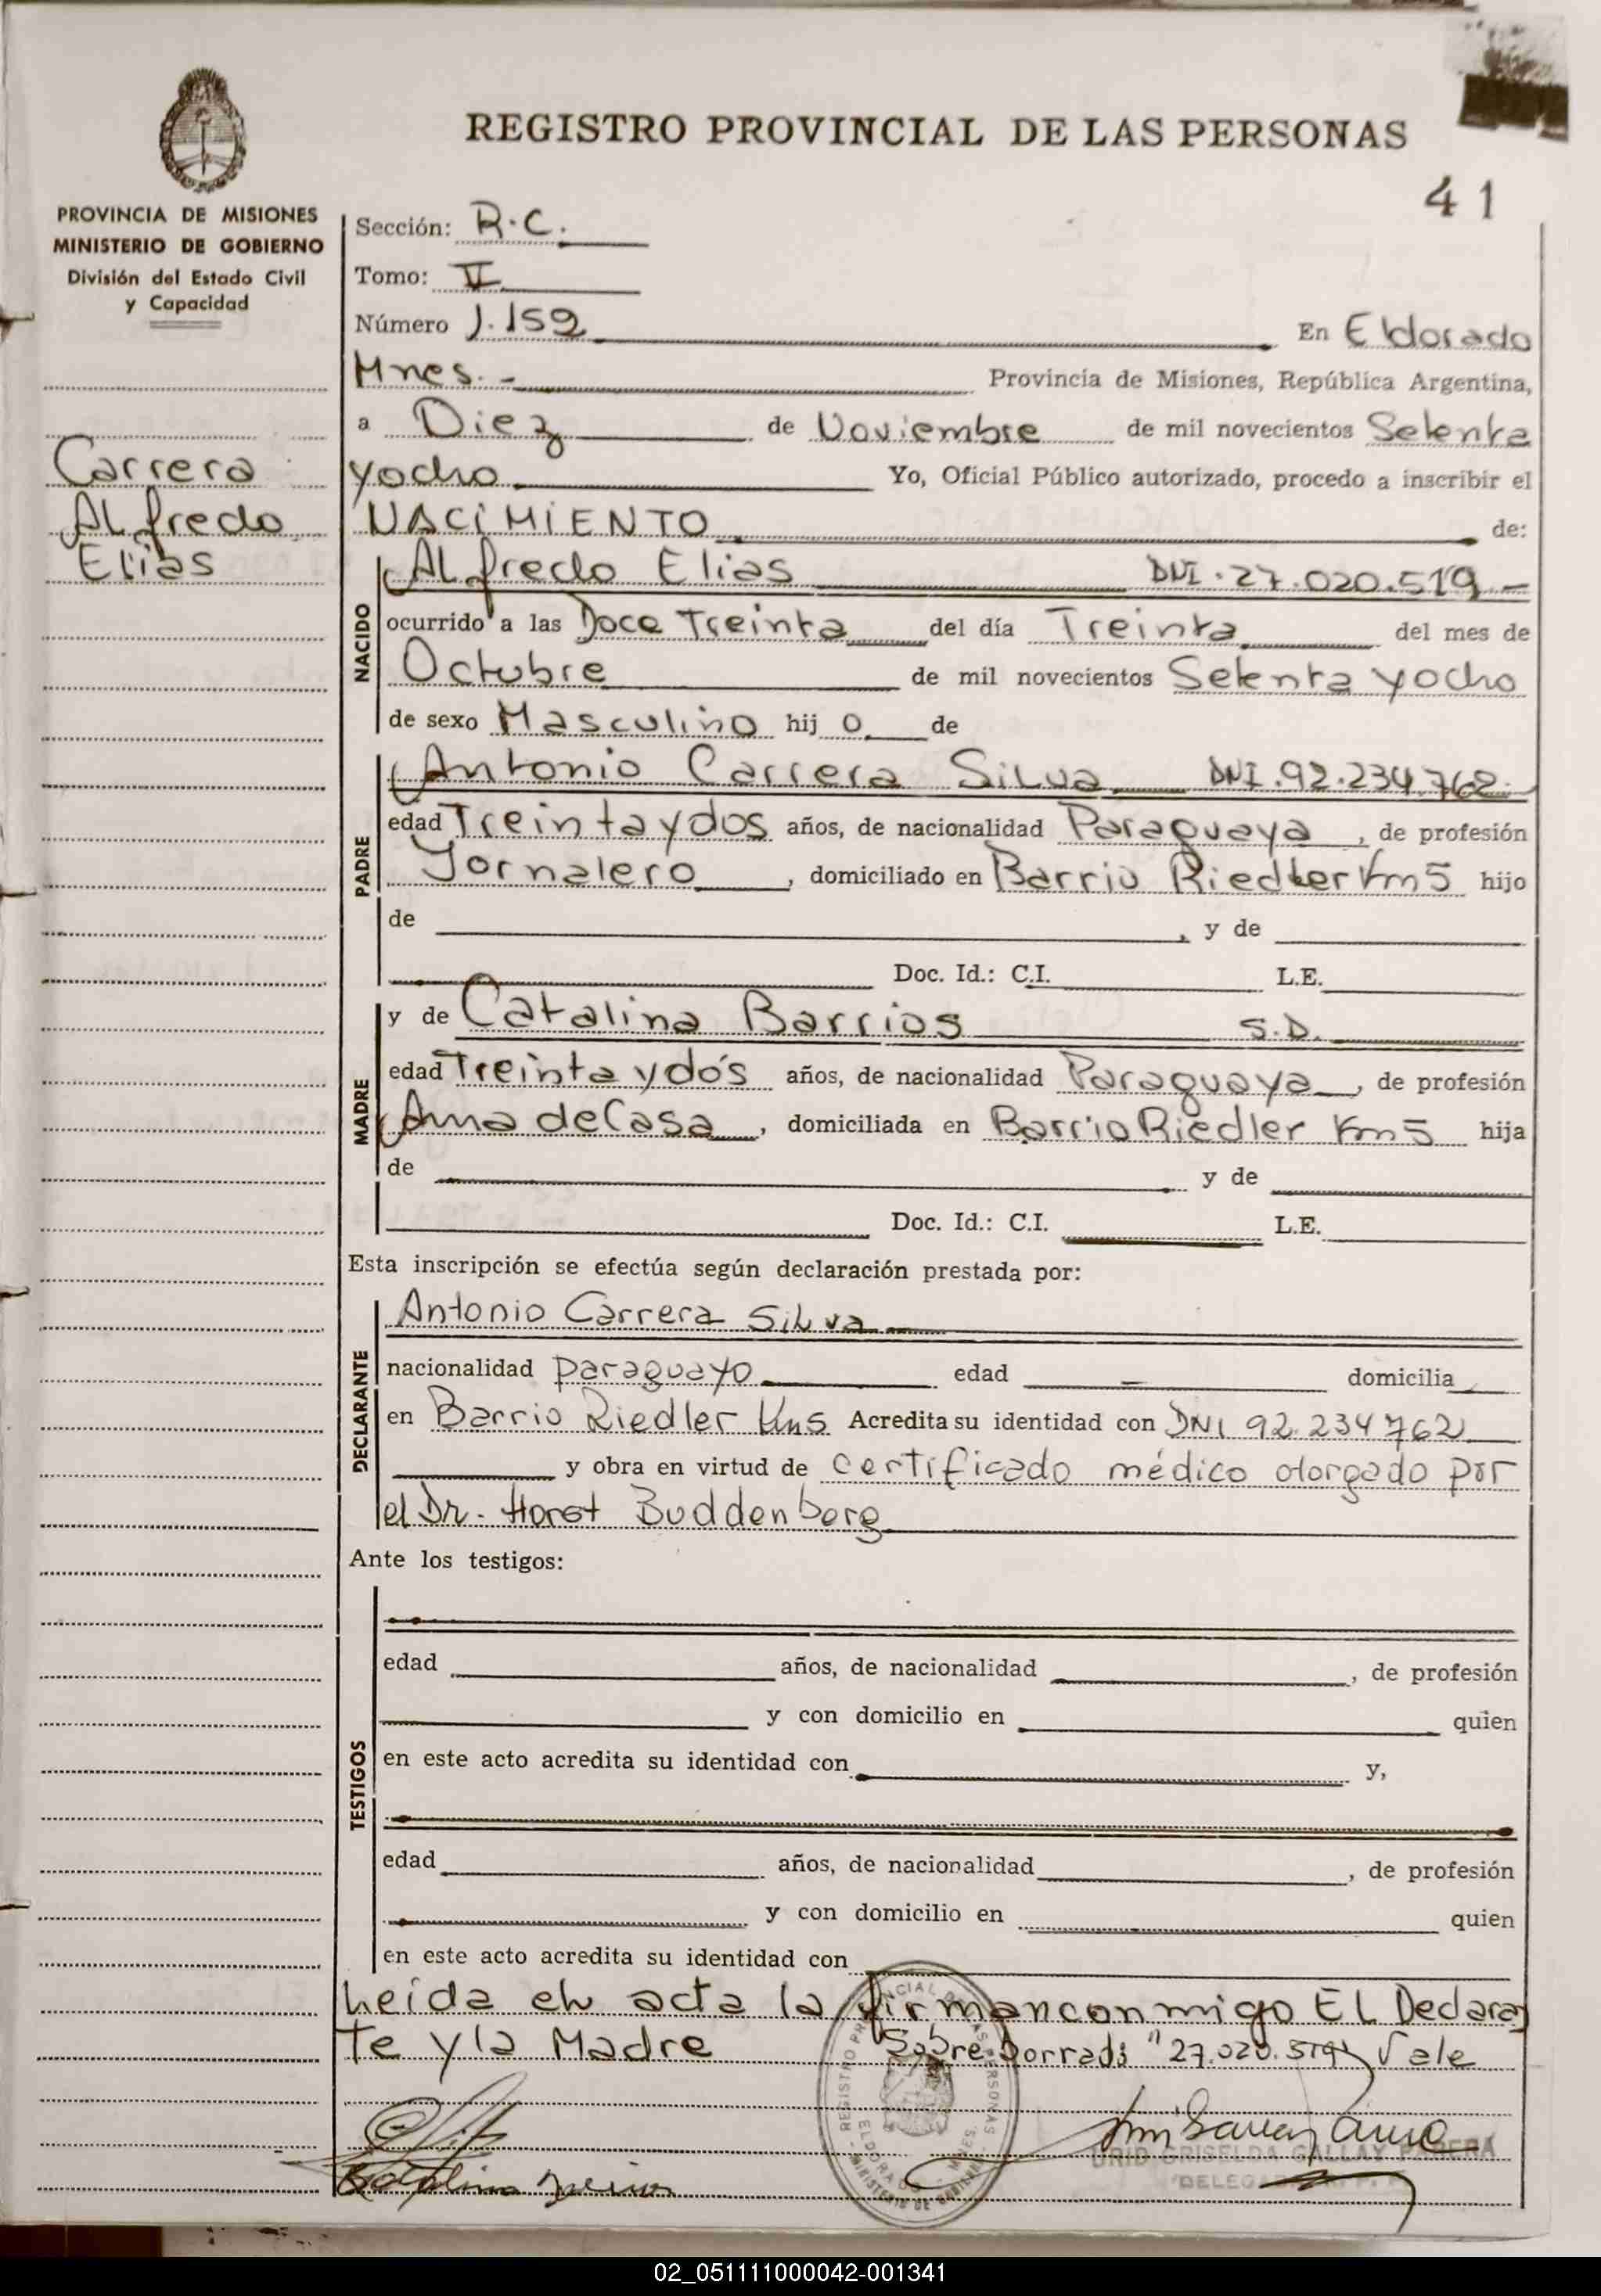 REGISTRO PROVINCIAL DE LAS PERSONAS
41
PROVINCIA DE MISIONES
MINISTERIO DE GOBIERNO
División del Estado Civil
y Capacidad
Carrera
Alfredo
Elias
Sección: R.C.
Tomo: II
Número 1.159 En Eldorado
Mnes. - Provincia de Misiones, República Argentina,
a Diez de Noviembre de mil novecientos Setenta
y ocho Yo, Oficial Público autorizado, procedo a inscribir el
NACIMIENTO de:
NACIDO
Alfredo Elias DNI. 27.020.519 -
ocurrido a las Doce Treinta del día Treinta del mes de
Octubre de mil novecientos Setenta y ocho
de sexo Masculino hij o de
PADRE
Antonio Carrera Silva DNI. 92.234.762
edad Treinta y dos años, de nacionalidad Paraguaya, de profesión
Jornalero, domiciliado en Barrio Riedler Km 5 hijo
de , y de
Doc. Id.: C.I. L.E.
MADRE
y de Catalina Barrios S.D.
edad Treinta y dos años, de nacionalidad Paraguaya, de profesión
Ama de Casa, domiciliada en Barrio Riedler Km 5 hija
de y de
Doc. Id.: C.I. L.E.
Esta inscripción se efectúa según declaración prestada por:
DECLARANTE
Antonio Carrera Silva
nacionalidad paraguayo edad — domicilia
en Barrio Riedler Km 5 Acredita su identidad con DNI 92.234762
y obra en virtud de certificado médico otorgado por
el Dr. Horst Buddenberg
Ante los testigos:
TESTIGOS
edad años, de nacionalidad , de profesión
y con domicilio en quien
en este acto acredita su identidad con y,
edad años, de nacionalidad , de profesión
y con domicilio en quien
en este acto acredita su identidad con
Leída el acta la firman conmigo El Declaran
te y la Madre Sobre borrado "27.020.519" Vale
REGISTRO PROVINCIAL DE LAS PERSONAS
ELDORADO - MNES.
MINISTERIO DE GOBIERNO
GRISELDA GALLAY PERERA
02_051111000042-001341